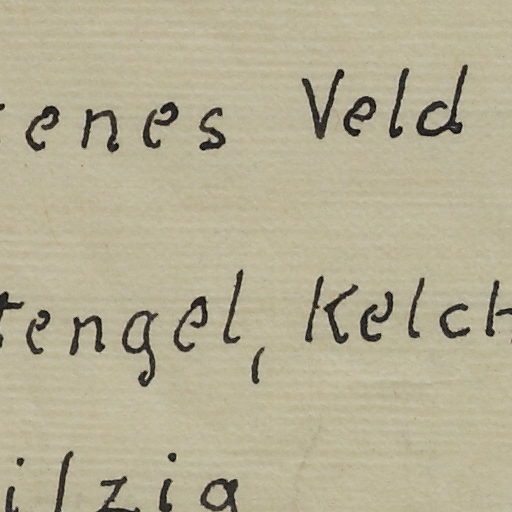 enes Veld
tengel, Kelch
ilzig